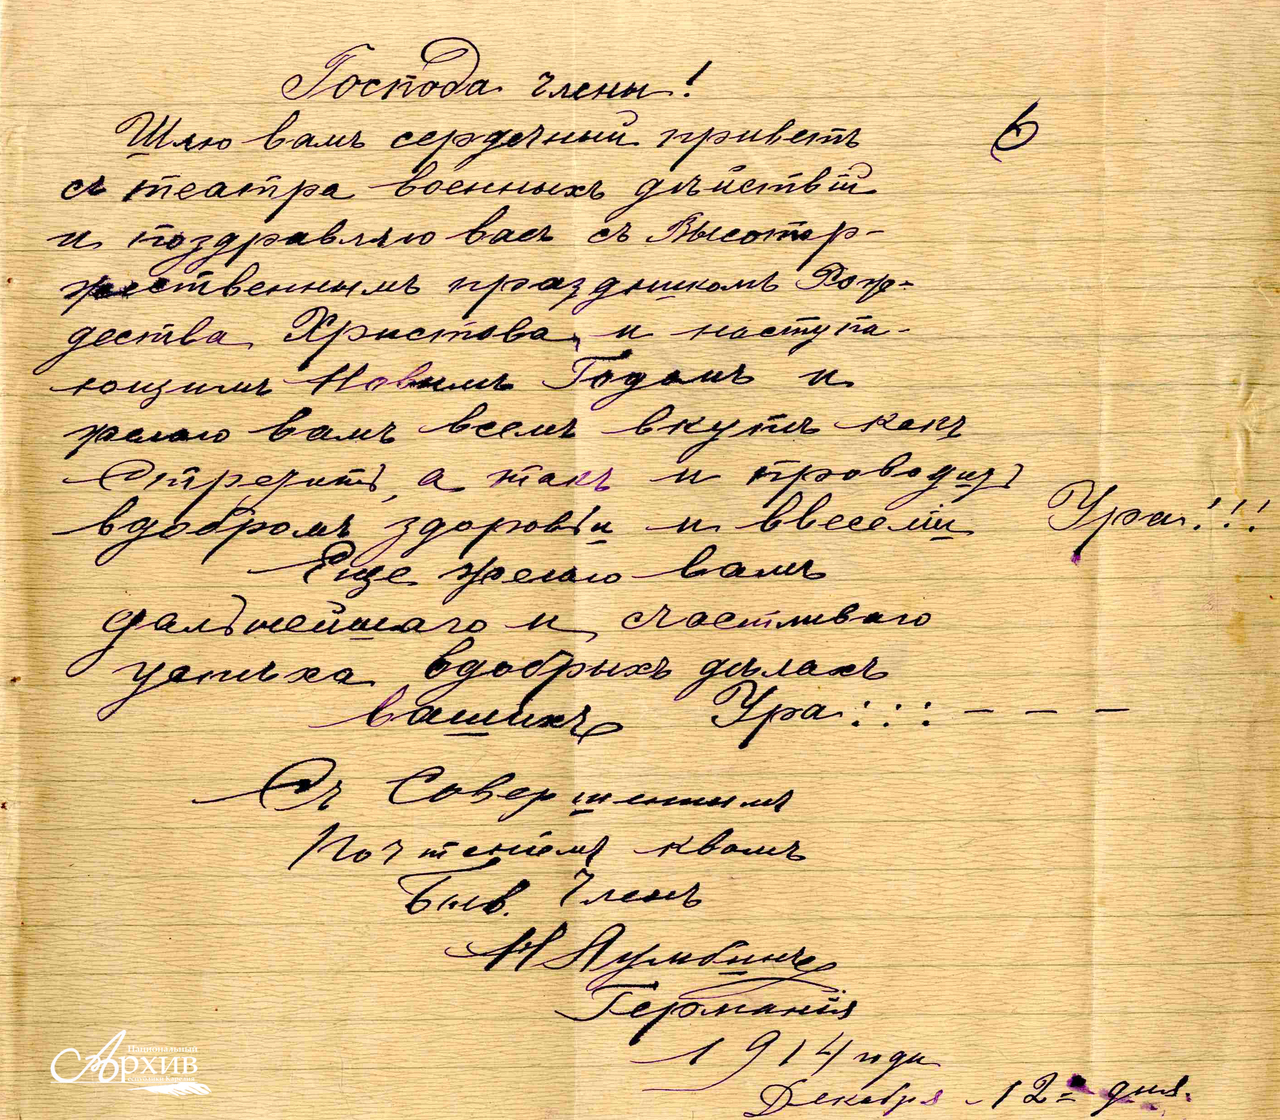 Господа члены!
Шлю вамъ сердечный приветъ
6
съ театра военныхъ дѣйствій
и поздравляю васъ съ Высотор-
жественнымъ праздникомъ Рож-
дества Христова и наступа-
ющимъ Новымъ Годомъ и
желаю вамъ всемъ вкупѣ какъ
Стретить, а такъ и проводить
вдобромъ здоровіи и ввеселіи Ура!!!
Еще желаю вамъ
дальнейшаго и счастливаго
успѣха вдобрыхъ дѣлахъ
вашихъ Ура:::– – –
Съ Совершеннымъ
Почтеніемъ квамъ
Быв. Членъ
Германія
1914 года
Декабря 12= дня.
Национальный
Архив